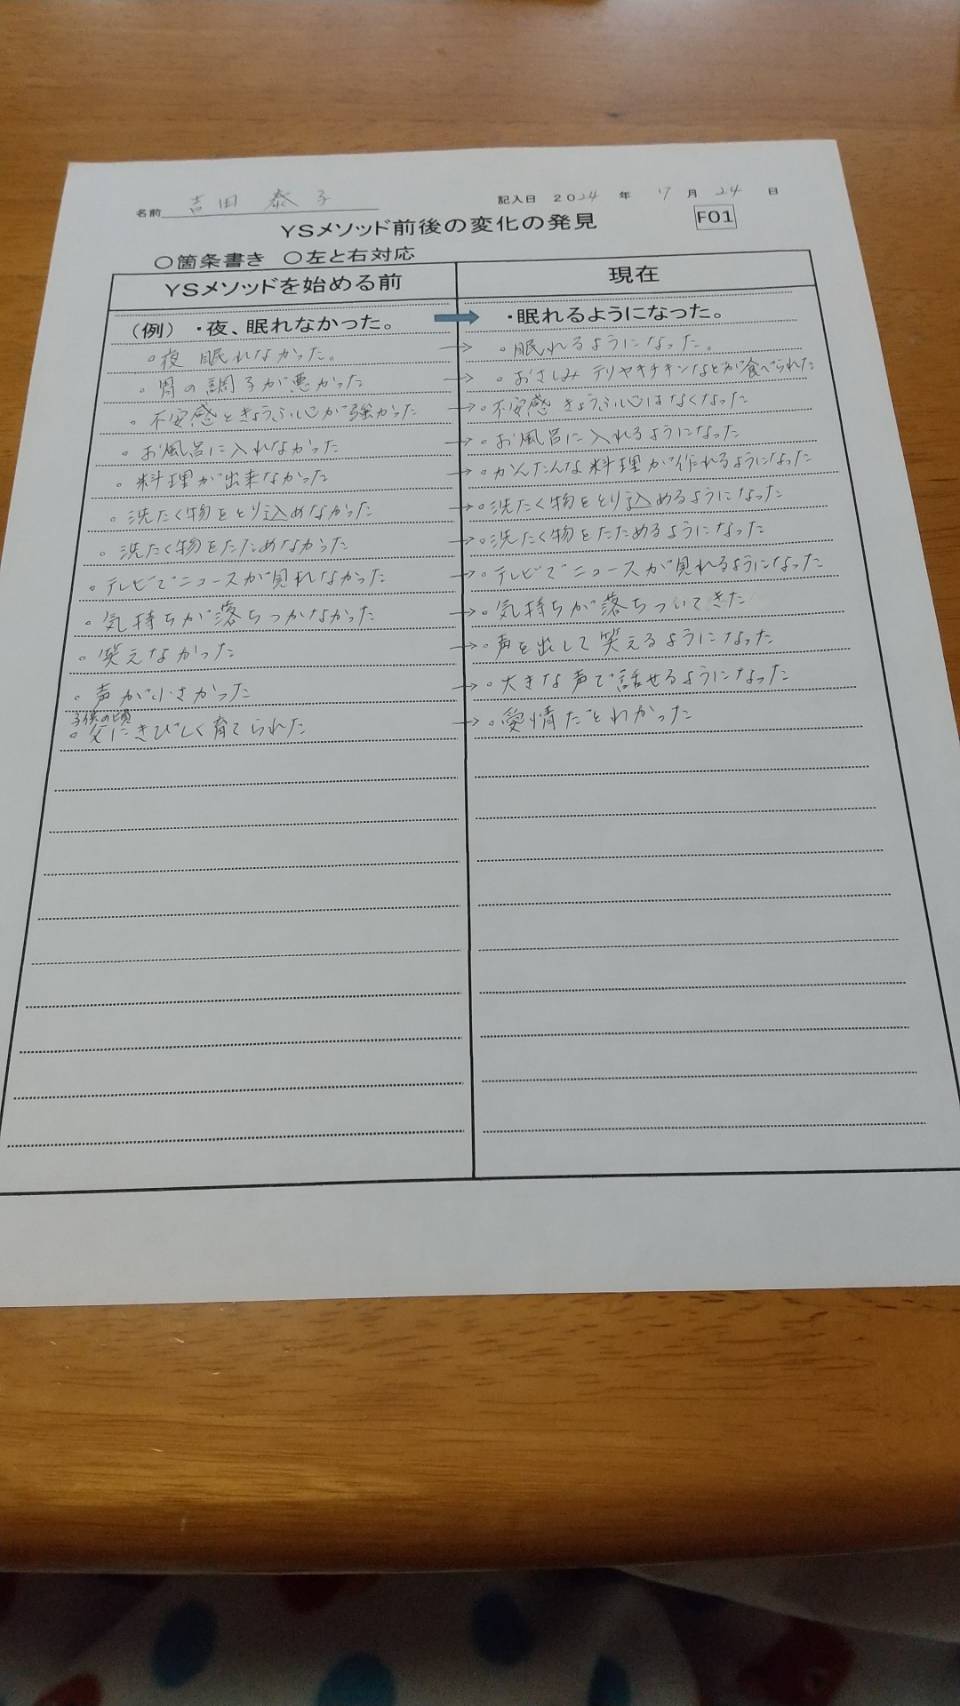 名前 吉田 泰子 記入日 2024 年 7 月 24 日
YSメソッド前後の変化の発見 F01
○箇条書き ○左と右対応
YSメソッドを始める前 現在
(例) ・夜、眠れなかった。 ・眠れるようになった。
○夜 眠れなかった。 → ○眠れるようになった。
○胃の調子が悪かった → ○おさしみ テリヤキチキンなどが食べられた
○不安感ときょうふ心が強かった → ○不安感 きょうふ心はなくなった
○お風呂に入れなかった → ○お風呂に入れるようになった
○料理が出来なかった → ○かんたんな料理が作れるようになった
○洗たく物をとり込めなかった → ○洗たく物をとり込めるようになった
○洗たく物をたためなかった → ○洗たく物をたためるようになった
○テレビでニュースが見れなかった → ○テレビでニュースが見れるようになった
○気持ちが落ちつかなかった → ○気持ちが落ちついてきた
○笑えなかった → ○声を出して笑えるようになった
○声が小さかった → ○大きな声で話せるようになった
子供の頃
○父にきびしく育てられた → ○愛情だとわかった